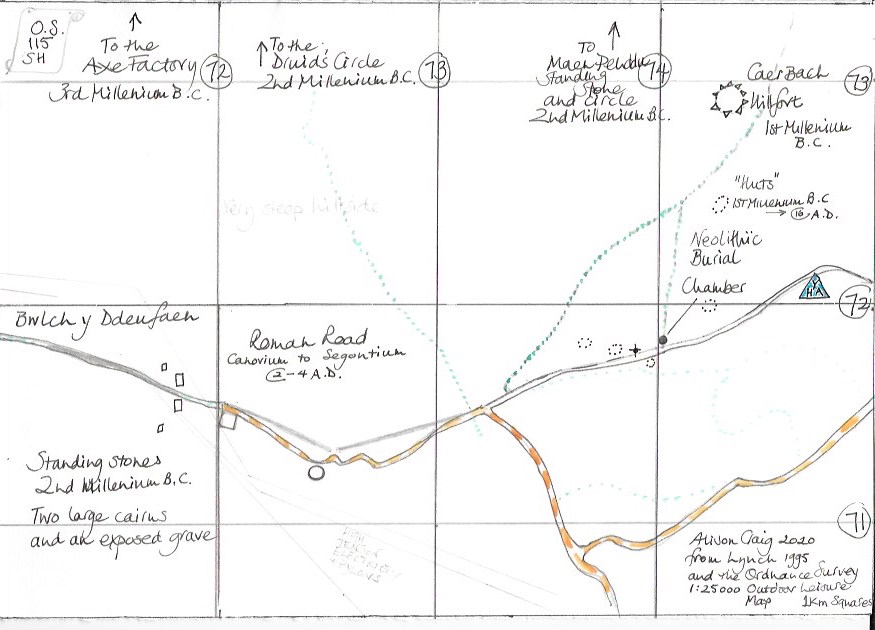 O.S.
115
SH
To the
Axe Factory
3rd Millenium B.C.
72
To the;
Druid's Circle
2nd Millenium B.C.
73
To
Maen Penddu
Standing
Stone
and Circle
2nd Millenium B.C.
74
Caer Bach
Hillfort
1st Millenium
B.C.
73
"Huts"
1st Millenium B.C
→ 10 A.D.
Very steep hillside
Neolithic
Burial
Chamber
YHA
72
Bwlch y Ddeufaen
Roman Road
Canovium to Segontium
2-4 A.D.
Standing stones
2nd Millenium B.C.
Two large cairns
and an exposed grave
71
Alison Craig 2020
from Lynch 1995
and the Ordnance Survey
1:25000 Outdoor Leisure
Map 1Km Squares